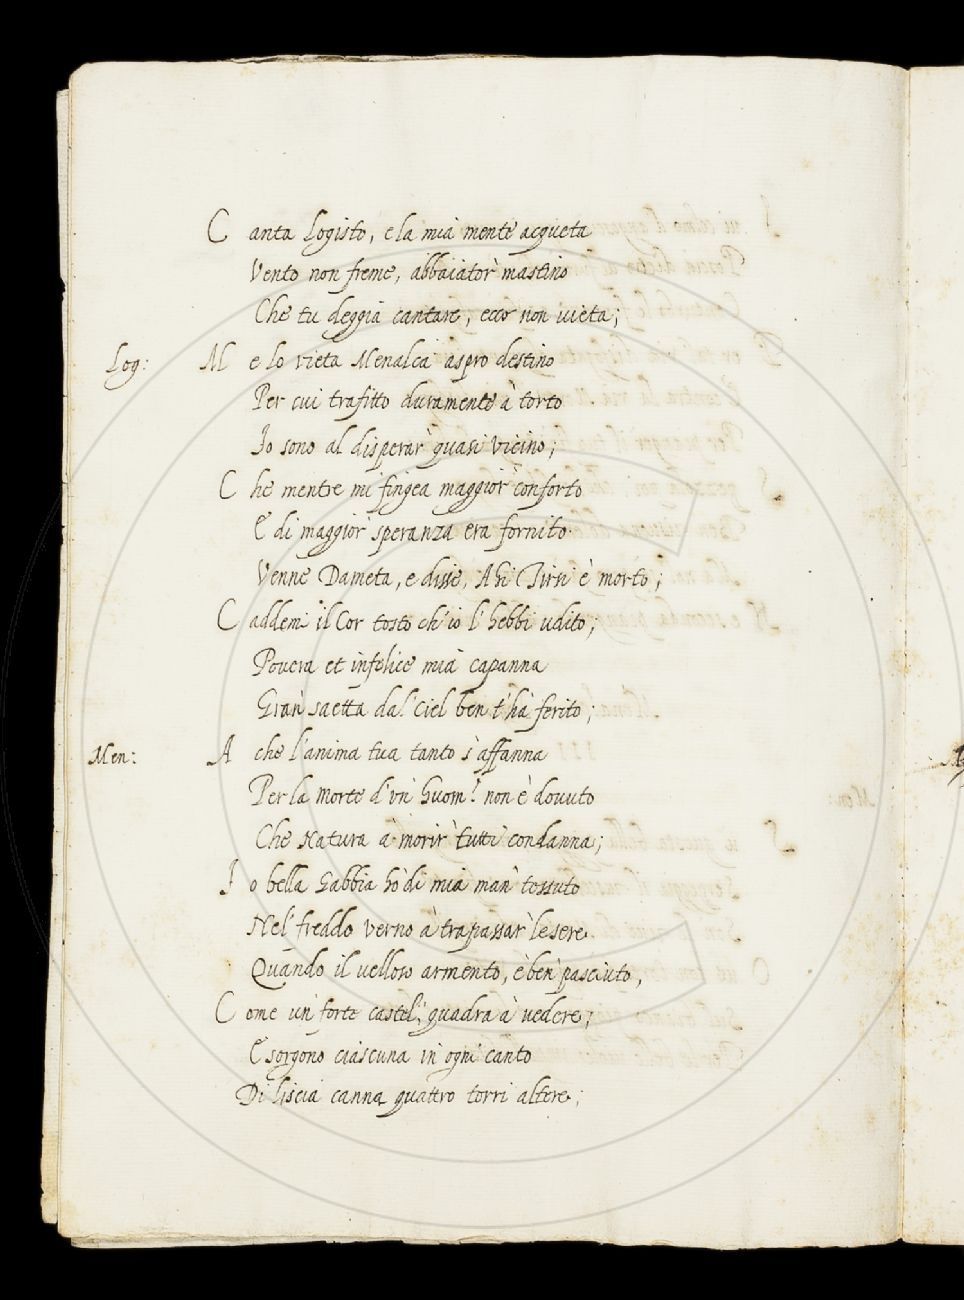 Canta Logisto, e la mia mente acqueta
Vento non freme, abbaiator mastino
Che tu deggia cantare, ecco non vieta;
Log: Me lo vieta Menalca aspro destino
Per cui trafitto duramente à torto
Io sono al disperar quasi vicino;
Che mentre mi fingea maggior conforto
E di maggior speranza era fornito.
Venne Dameta, e disse, Ahi Tirsi è morto;
Caddemi il Cor tosto ch'io l'hebbi udito;
Povera et infelice mia capanna
Gran saetta dal Ciel ben t'hà ferito;
Men: A che l'anima tua tanto s'affanna
Per la morte d'un huom? non è dovuto
Che Natura à morir tutti condanna;
Io bella Gabbia hò di mia man tessuto
Nel freddo verno à trapassar le sere
Quando il velloso armento, è ben pasciuto,
Come un forte castel, quadra à vedere;
E sorgono ciascuna in ogni canto
Di liscia canna quattro torri altere;